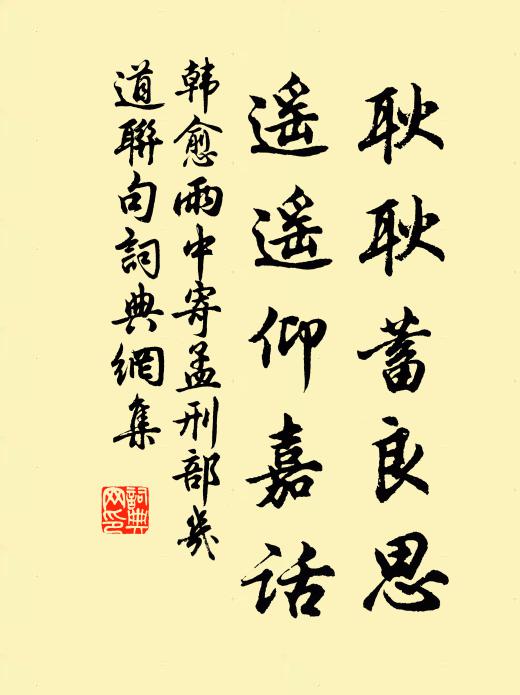 耿耿蓄良思
遥遥仰嘉话
韩愈雨中寄孟刑部幾
道聯句詞典網集
詞典
网印